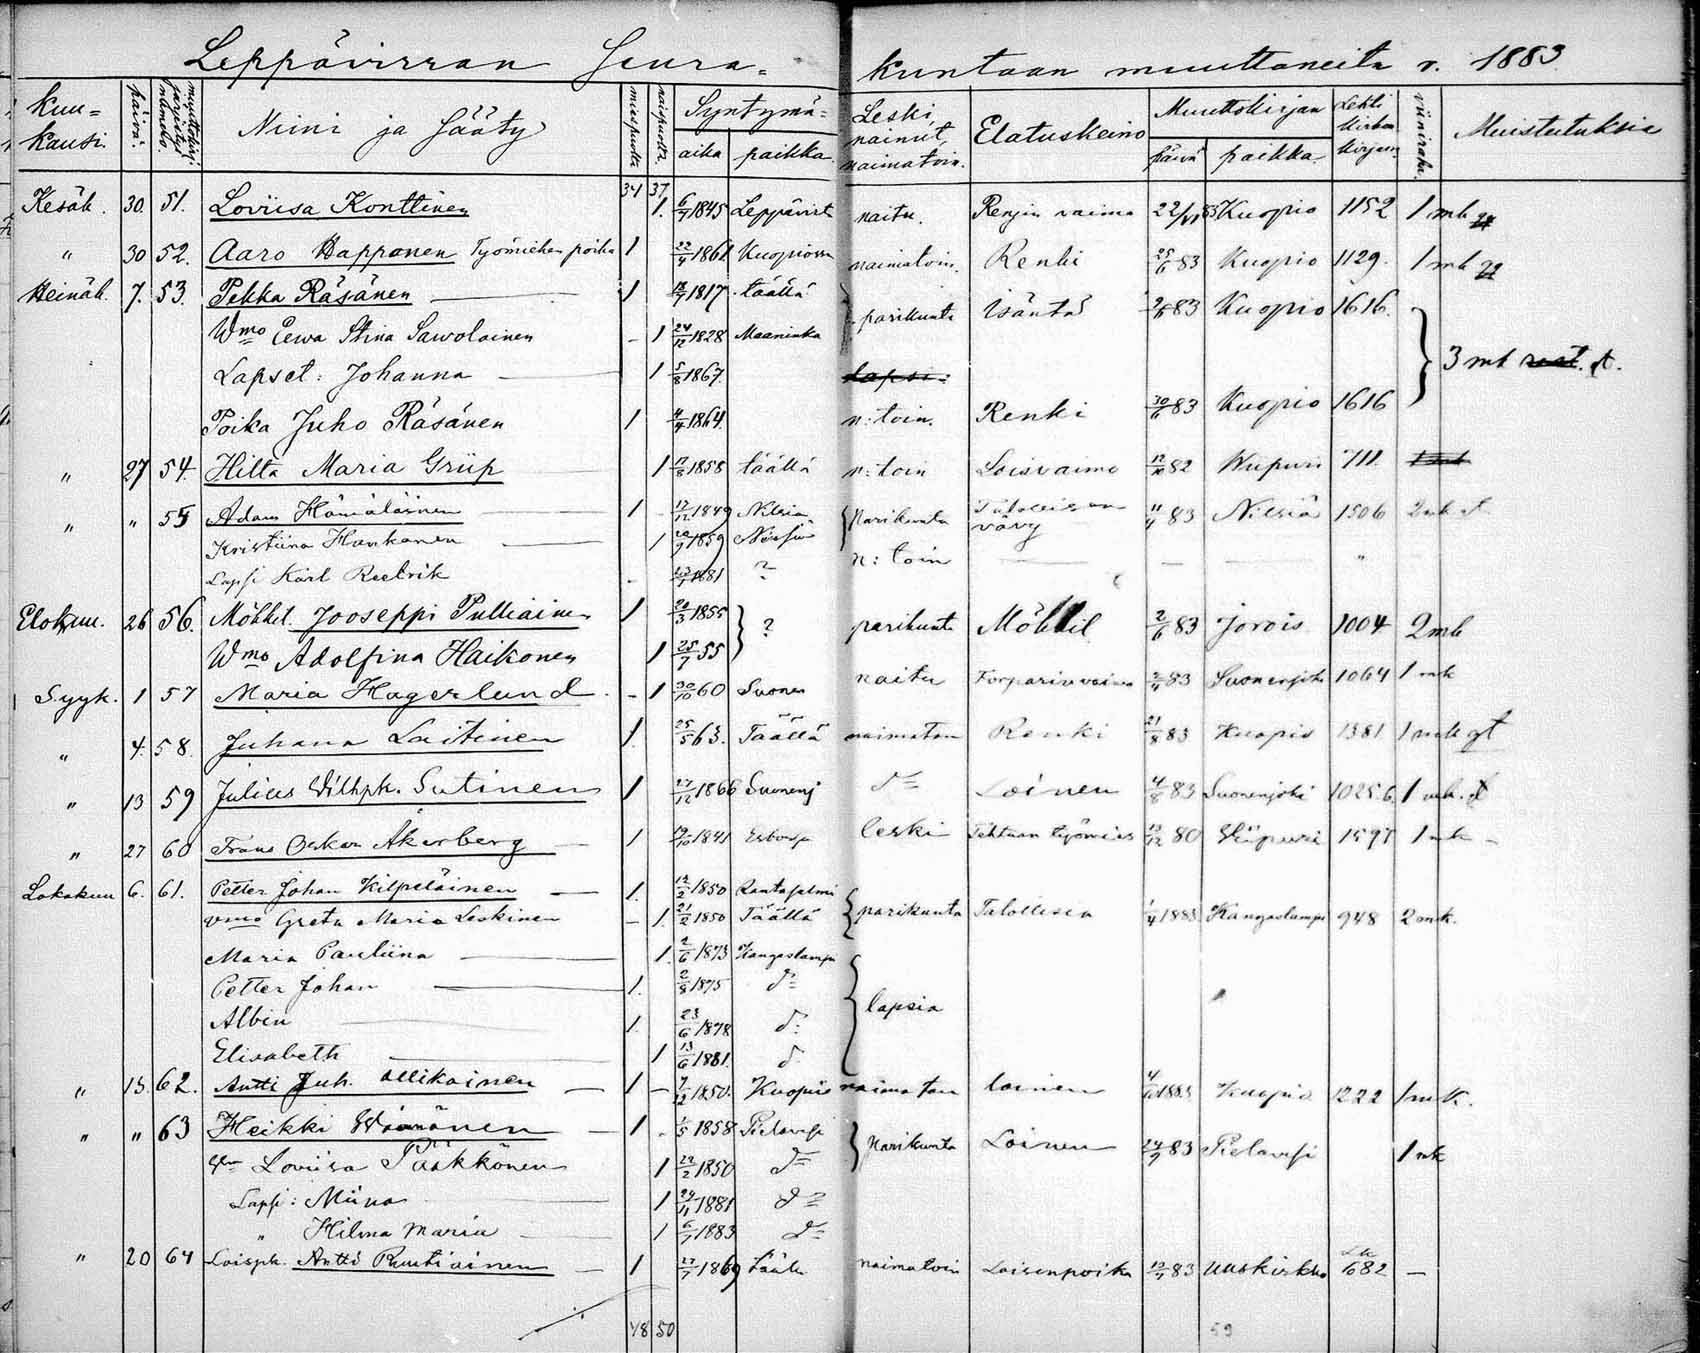 Leppävirran Seura= kuntaan muuttaneita v. 1883
Kuu= kausi. päivä. muuttokirj. järjestys numero. Nimi ja Sääty miespuolta naispuolta. Syntymä= aika paikka Leski, nainut, naimatoin. Elatuskeino Muuttokirjan päivä paikka Lehti kirkon kirjan viiniraha. Muistutuksia
34 37
Kesäk. 30. 51. Loviisa Konttinen 1. 6/7 1845 Leppävirt naitu. Rengin vaimo 22/VI 83 Kuopio 1152 1 mk
" 30 52. Aaro Happonen Työmiehen poika 1 22/4 1861 Kuopiossa naimatoin. Renki 25/6 83 Kuopio 1129. 1 mk
Heinäk. 7. 53. Pekka Räsänen 1 18/7 1817 täällä parikunta Isäntä 83 Kuopio 1616.
Wmo Eewa Stina Sawolainen - 1 24/12 1828 Maaninka
Lapset: Johanna 1 5/8 1867. lapsi: 3 mk
Poika Juho Räsänen 1 4/4 1864. n: toin. Renki 30/6 83 Kuopio 1616
" 27 54. Hilta Maria Griip 1 17/8 1858 täällä n: toin Loisvaimo 12/10 82 Wiipuri 711.
" " 55 Adam Hämäläinen 1 12/12 1849 Nilsiä parikunta Talollisen vävy 11/4 83 Nilsiä 1506 2 mk
Kristiina Hankanen 1 1859 Nilsiä
Lapsi Karl Reetrik - 1881 ? n: toin — — — "
Elokuu. 26 56. Mökkil. Jooseppi Pulliainen 1 20/3 1855 ? parikunta Mökkil 2/6 83 Jorois 1004 2 mk
Wmo Adolfina Haikonen 1 25/7 55
Syyk. 1 57 Maria Hagerlund - 1 30/10 60 Suonen naitu Torparin vaimo 2/4 83 Suonenjoki 1064 1 mk
" 4. 58. Juhana Laitinen 1. 25/5 63. Täällä naimaton Renki 21/8 83 Kuopio 1381 1 mk
" 13 59 Julius Vilhpk. Sutinen 1 27/12 1866 Suonenj d= Loinen 4/8 83 Suonenjoki 1025.6. 1 mk.
" 27 60 Frans Oskar Åkerberg 1 19/10 1841 Esbossa leski Tehtaan työmies 13/12 80 Wiipuri 1597 1 mk -
Lokakuu 6. 61. Petter Johan Kilpeläinen 1. 14/2 1850 Rantasalmi parikunta Talollisia 1/4 1883 Kangaslampi 948 2 mk.
vmo Greta Maria Leskinen - 1. 21/2 1850 Täällä
Maria Pauliina 1. 2/6 1873 Kangaslampi
Petter Johan 1. 2/8 1875 d= lapsia
Albin 1. 23/6 1878 d:
Elisabeth 1 13/6 1881. d
" 13. 62. Antti Juh. Ollikainen 1 - 7/12 1850. Kuopio naimaton loinen 1883 Kuopio 1222 1 mk.
" " 63 Heikki Väänänen 1 - 1/5 1858 Pielavesi parikunta Loinen 24/9 83 Pielavesi 1 mk
Loviisa Pääkkönen 1 22/2 1850 d=
Lapsi: Miina 1 29/11 1881 d=
" Hilma Maria 1 6/7 1883 d=
" 20 64 Loispk. Antti Ruutiainen 1 27/7 1869 täällä naimatoin Loisenpoika 83 Uuskirkko Lk 682 —
48 50
59